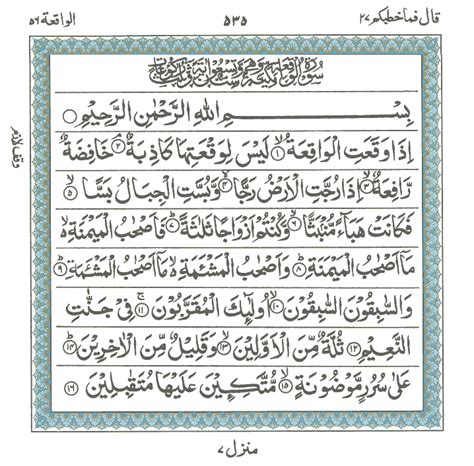 قال فما خطبكم ٢٧ ٥٣٥ الواقعة ٥٦
بِسْمِ اللهِ الرَّحْمٰنِ الرَّحِيْمِ
اِذَا وَقَعَتِ الْوَاقِعَةُ ۙ﴿۱﴾ لَيْسَ لِوَقْعَتِهَا كَاذِبَةٌ ۘ﴿۲﴾ خَافِضَةٌ
رَّافِعَةٌ ۙ﴿۳﴾ اِذَا رُجَّتِ الْاَرْضُ رَجًّا ۙ﴿۴﴾ وَّبُسَّتِ الْجِبَالُ بَسًّا ۙ﴿۵﴾
فَكَانَتْ هَبَآءً مُّنْۢبَثًّا ۙ﴿۶﴾ وَّكُنْتُمْ اَزْوَاجًا ثَلٰثَةً ؕ﴿۷﴾ فَاَصْحٰبُ الْمَيْمَنَةِ ۙ
مَاۤ اَصْحٰبُ الْمَيْمَنَةِ ؕ﴿۸﴾ وَاَصْحٰبُ الْمَشْـَٔمَةِ ۙ مَاۤ اَصْحٰبُ الْمَشْـَٔمَةِ ؕ﴿۹﴾
وَالسّٰبِقُوْنَ السّٰبِقُوْنَ ۙ﴿۱۰﴾ اُولٰٓئِكَ الْمُقَرَّبُوْنَ ۚ﴿۱۱﴾ فِيْ جَنّٰتِ
النَّعِيْمِ ﴿۱۲﴾ ثُلَّةٌ مِّنَ الْاَوَّلِيْنَ ۙ﴿۱۳﴾ وَقَلِيْلٌ مِّنَ الْاٰخِرِيْنَ ؕ﴿۱۴﴾
عَلٰى سُرُرٍ مَّوْضُوْنَةٍ ۙ﴿۱۵﴾ مُّتَّكِـِٕيْنَ عَلَيْهَا مُتَقٰبِلِيْنَ ﴿۱۶﴾
وقف لازم
منزل ٧